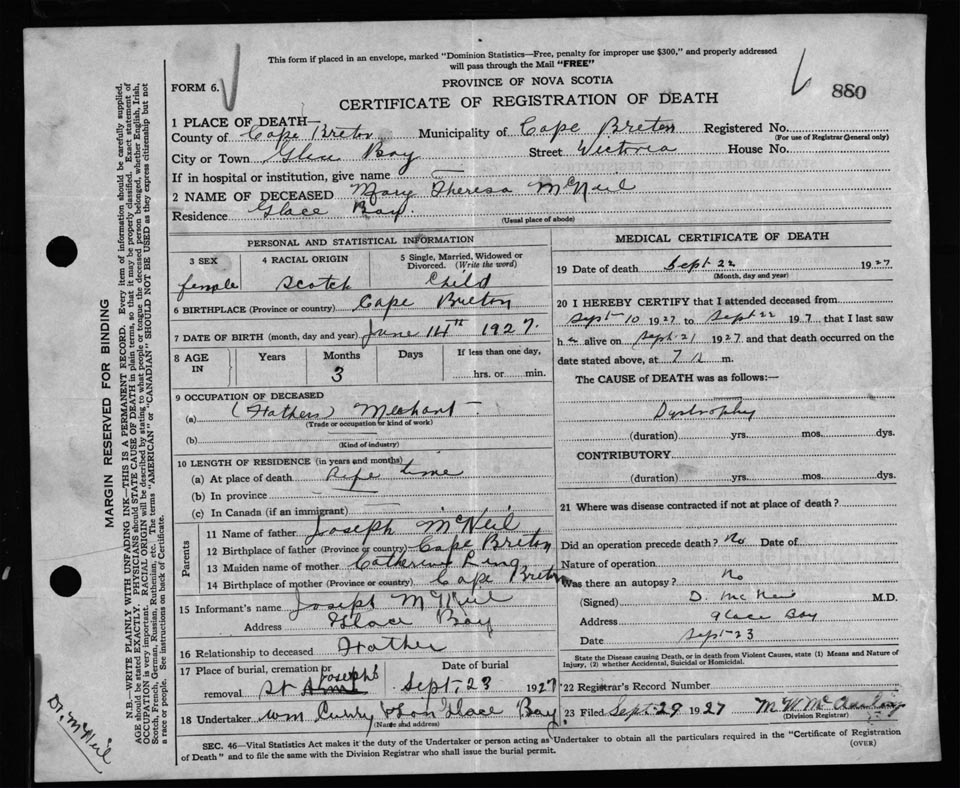 This form if placed in an envelope, marked "Dominion Statistics—Free, penalty for improper use $300," and properly addressed
will pass through the Mail "FREE"
FORM 6.
PROVINCE OF NOVA SCOTIA
880
CERTIFICATE OF REGISTRATION OF DEATH
1 PLACE OF DEATH—
County of Cape Breton Municipality of Cape Breton Registered No.
(For use of Registrar General only)
City or Town Glace Bay Street Victoria House No.
If in hospital or institution, give name —
2 NAME OF DECEASED Mary Theresa McNeil
Residence Glace Bay.
(Usual place of abode)
PERSONAL AND STATISTICAL INFORMATION
3 SEX 4 RACIAL ORIGIN 5 Single, Married, Widowed or Divorced. (Write the word)
female Scotch Child
6 BIRTHPLACE (Province or country) Cape Breton
7 DATE OF BIRTH (month, day and year) June 14th 1927.
8 AGE IN Years Months Days If less than one day,
3 hrs. or min.
9 OCCUPATION OF DECEASED
(a) (Father) Mechant —
(Trade or occupation or kind of work)
(b)
(Kind of industry)
10 LENGTH OF RESIDENCE (in years and months)
(a) At place of death Life time
(b) In province
(c) In Canada (if an immigrant)
Parents
11 Name of father Joseph McNeil
12 Birthplace of father (Province or country) Cape Breton
13 Maiden name of mother Catherine
14 Birthplace of mother (Province or country) Cape Breton
15 Informant's name Joseph McNeil
Address Glace Bay
16 Relationship to deceased Father
17 Place of burial, cremation or removal St Josephs
Date of burial Sept. 23 1927
18 Undertaker Wm Curry & Son Glace Bay
(Name and address)
MEDICAL CERTIFICATE OF DEATH
19 Date of death Sept 22 1927
(Month, day and year)
20 I HEREBY CERTIFY that I attended deceased from
Sept 10 1927 to Sept 22 1927, that I last saw
h alive on Sept. 21 1927 and that death occurred on the
date stated above, at 7 a m.
The CAUSE of DEATH was as follows:—
Dystrophy
(duration) yrs. mos. dys.
CONTRIBUTORY
(duration) yrs. mos. dys.
21 Where was disease contracted if not at place of death?
Did an operation precede death? No Date of
Nature of operation
Was there an autopsy? No
(Signed) D. McNeil M.D.
Address Glace Bay
Date Sept-23
State the Disease causing Death, or in death from Violent Causes, state (1) Means and Nature of
Injury, (2) whether Accidental, Suicidal or Homicidal.
22 Registrar's Record Number
23 Filed Sept. 29 1927
(Division Registrar)
SEC. 46—Vital Statistics Act makes it the duty of the Undertaker or person acting as Undertaker to obtain all the particulars required in the "Certificate of Registration
of Death" and to file the same with the Division Registrar who shall issue the burial permit.
(OVER)
MARGIN RESERVED FOR BINDING
N.B.—WRITE PLAINLY WITH UNFADING INK—THIS IS A PERMANENT RECORD. Every item of information should be carefully supplied.
AGE should be stated EXACTLY. PHYSICIANS should STATE CAUSE OF DEATH in plain terms, so that it may be properly classified. Exact statement of
OCCUPATION is very important. RACIAL ORIGIN will be described by stating to what people or tongue the deceased person belonged, whether English, Irish,
Scotch, French, German, Russian, Ruthenian, etc. The terms "AMERICAN" or "CANADIAN" SHOULD NOT BE USED as they express citizenship but not
a race or people. See instructions on back of Certificate.
Dr. McNeil